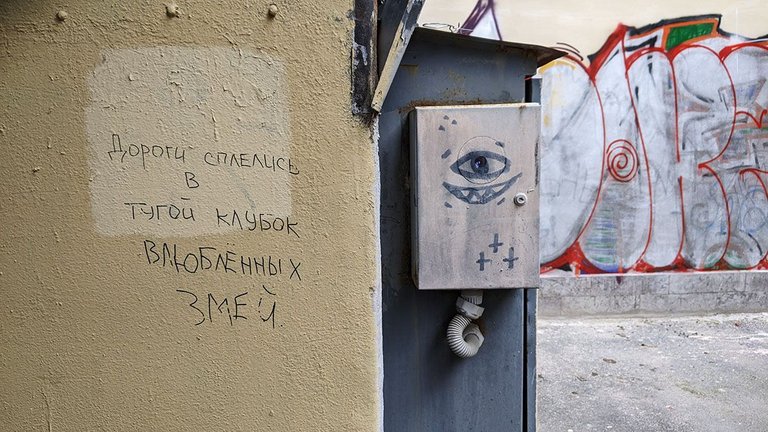 Дороги сплелись
в
тугой клубок
влюблённых
змей